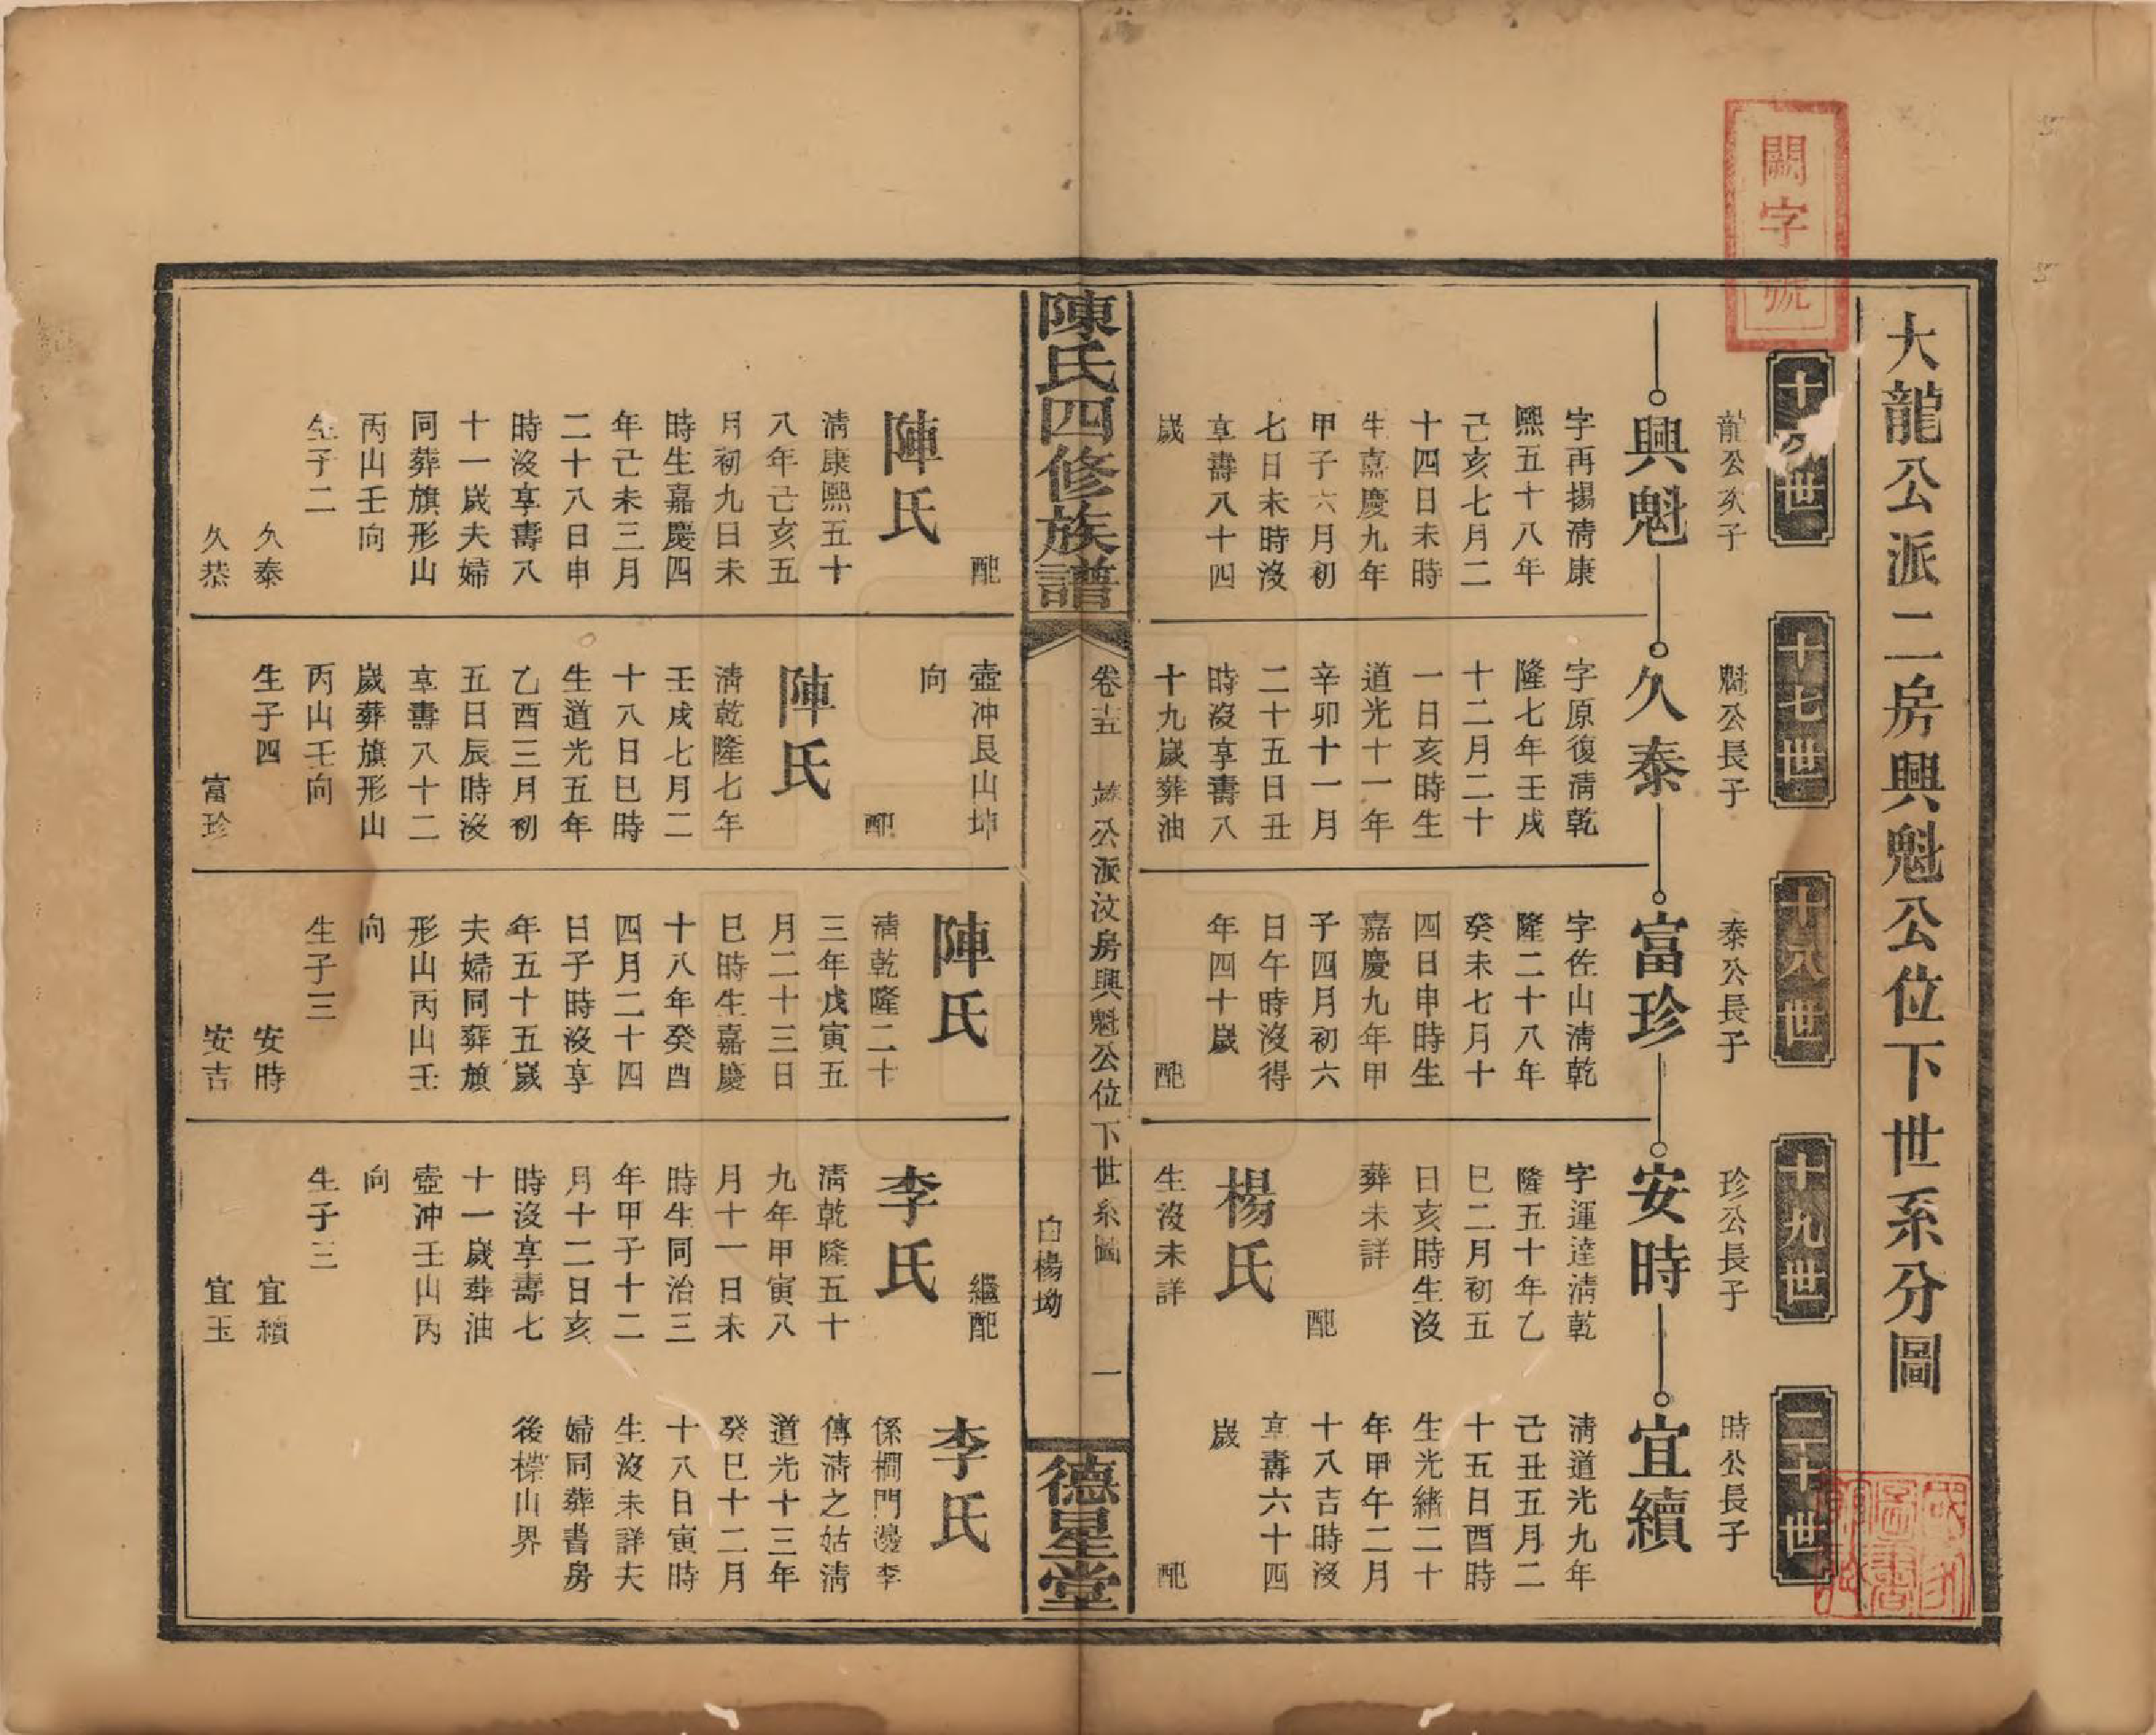 闕字號
大龍公派二房興魁公位下世系分圖
十六世
十七世
十八世
十九世
二十世
龍公次子
興魁
字再揚清康
熙五十八年
己亥七月二
十四日未時
生嘉慶九年
甲子六月初
七日未時沒
享壽八十四
歲
配
陳氏
清康熙五十
八年己亥五
月初九日未
時生嘉慶四
年己未三月
二十八日申
時沒享壽八
十一歲夫婦
同葬旗形山
丙山壬向
生子二
久泰
久恭
魁公長子
久泰
字原復清乾
隆七年壬戌
十二月二十
一日亥時生
道光十一年
辛卯十一月
二十五日丑
時沒享壽八
十九歲葬油
壺冲艮山坤
向
配
陳氏
清乾隆七年
壬戌七月二
十八日巳時
生道光五年
乙酉三月初
五日辰時沒
享壽八十二
歲葬旗形山
丙山壬向
生子四
富珍
泰公長子
富珍
字佐山清乾
隆二十八年
癸未七月十
四日申時生
嘉慶九年甲
子四月初六
日午時沒得
年四十歲
配
陳氏
清乾隆二十
三年戊寅五
月二十三日
巳時生嘉慶
十八年癸酉
四月二十四
日子時沒享
年五十五歲
夫婦同葬旗
形山丙山壬
向
生子三
安時
安吉
珍公長子
安時
字運達清乾
隆五十年乙
巳二月初五
日亥時生沒
葬未詳
配
楊氏
生沒未詳
繼配
李氏
清乾隆五十
九年甲寅八
月十一日未
時生同治三
年甲子十二
月十二日亥
時沒享壽七
十一歲葬油
壺冲壬山丙
向
生子三
宜續
宜玉
時公長子
宜續
清道光九年
己丑五月二
十五日酉時
生光緒二十
年甲午二月
十八吉時沒
享壽六十四
歲
配
李氏
係櫚門邊李
傳清之姑清
道光十三年
癸巳十二月
十八日寅時
生沒未詳夫
婦同葬書房
後檪山界
陳氏四修族譜
卷十五
公派汶房興魁公位下世系圖
白楊坳
一
德星堂